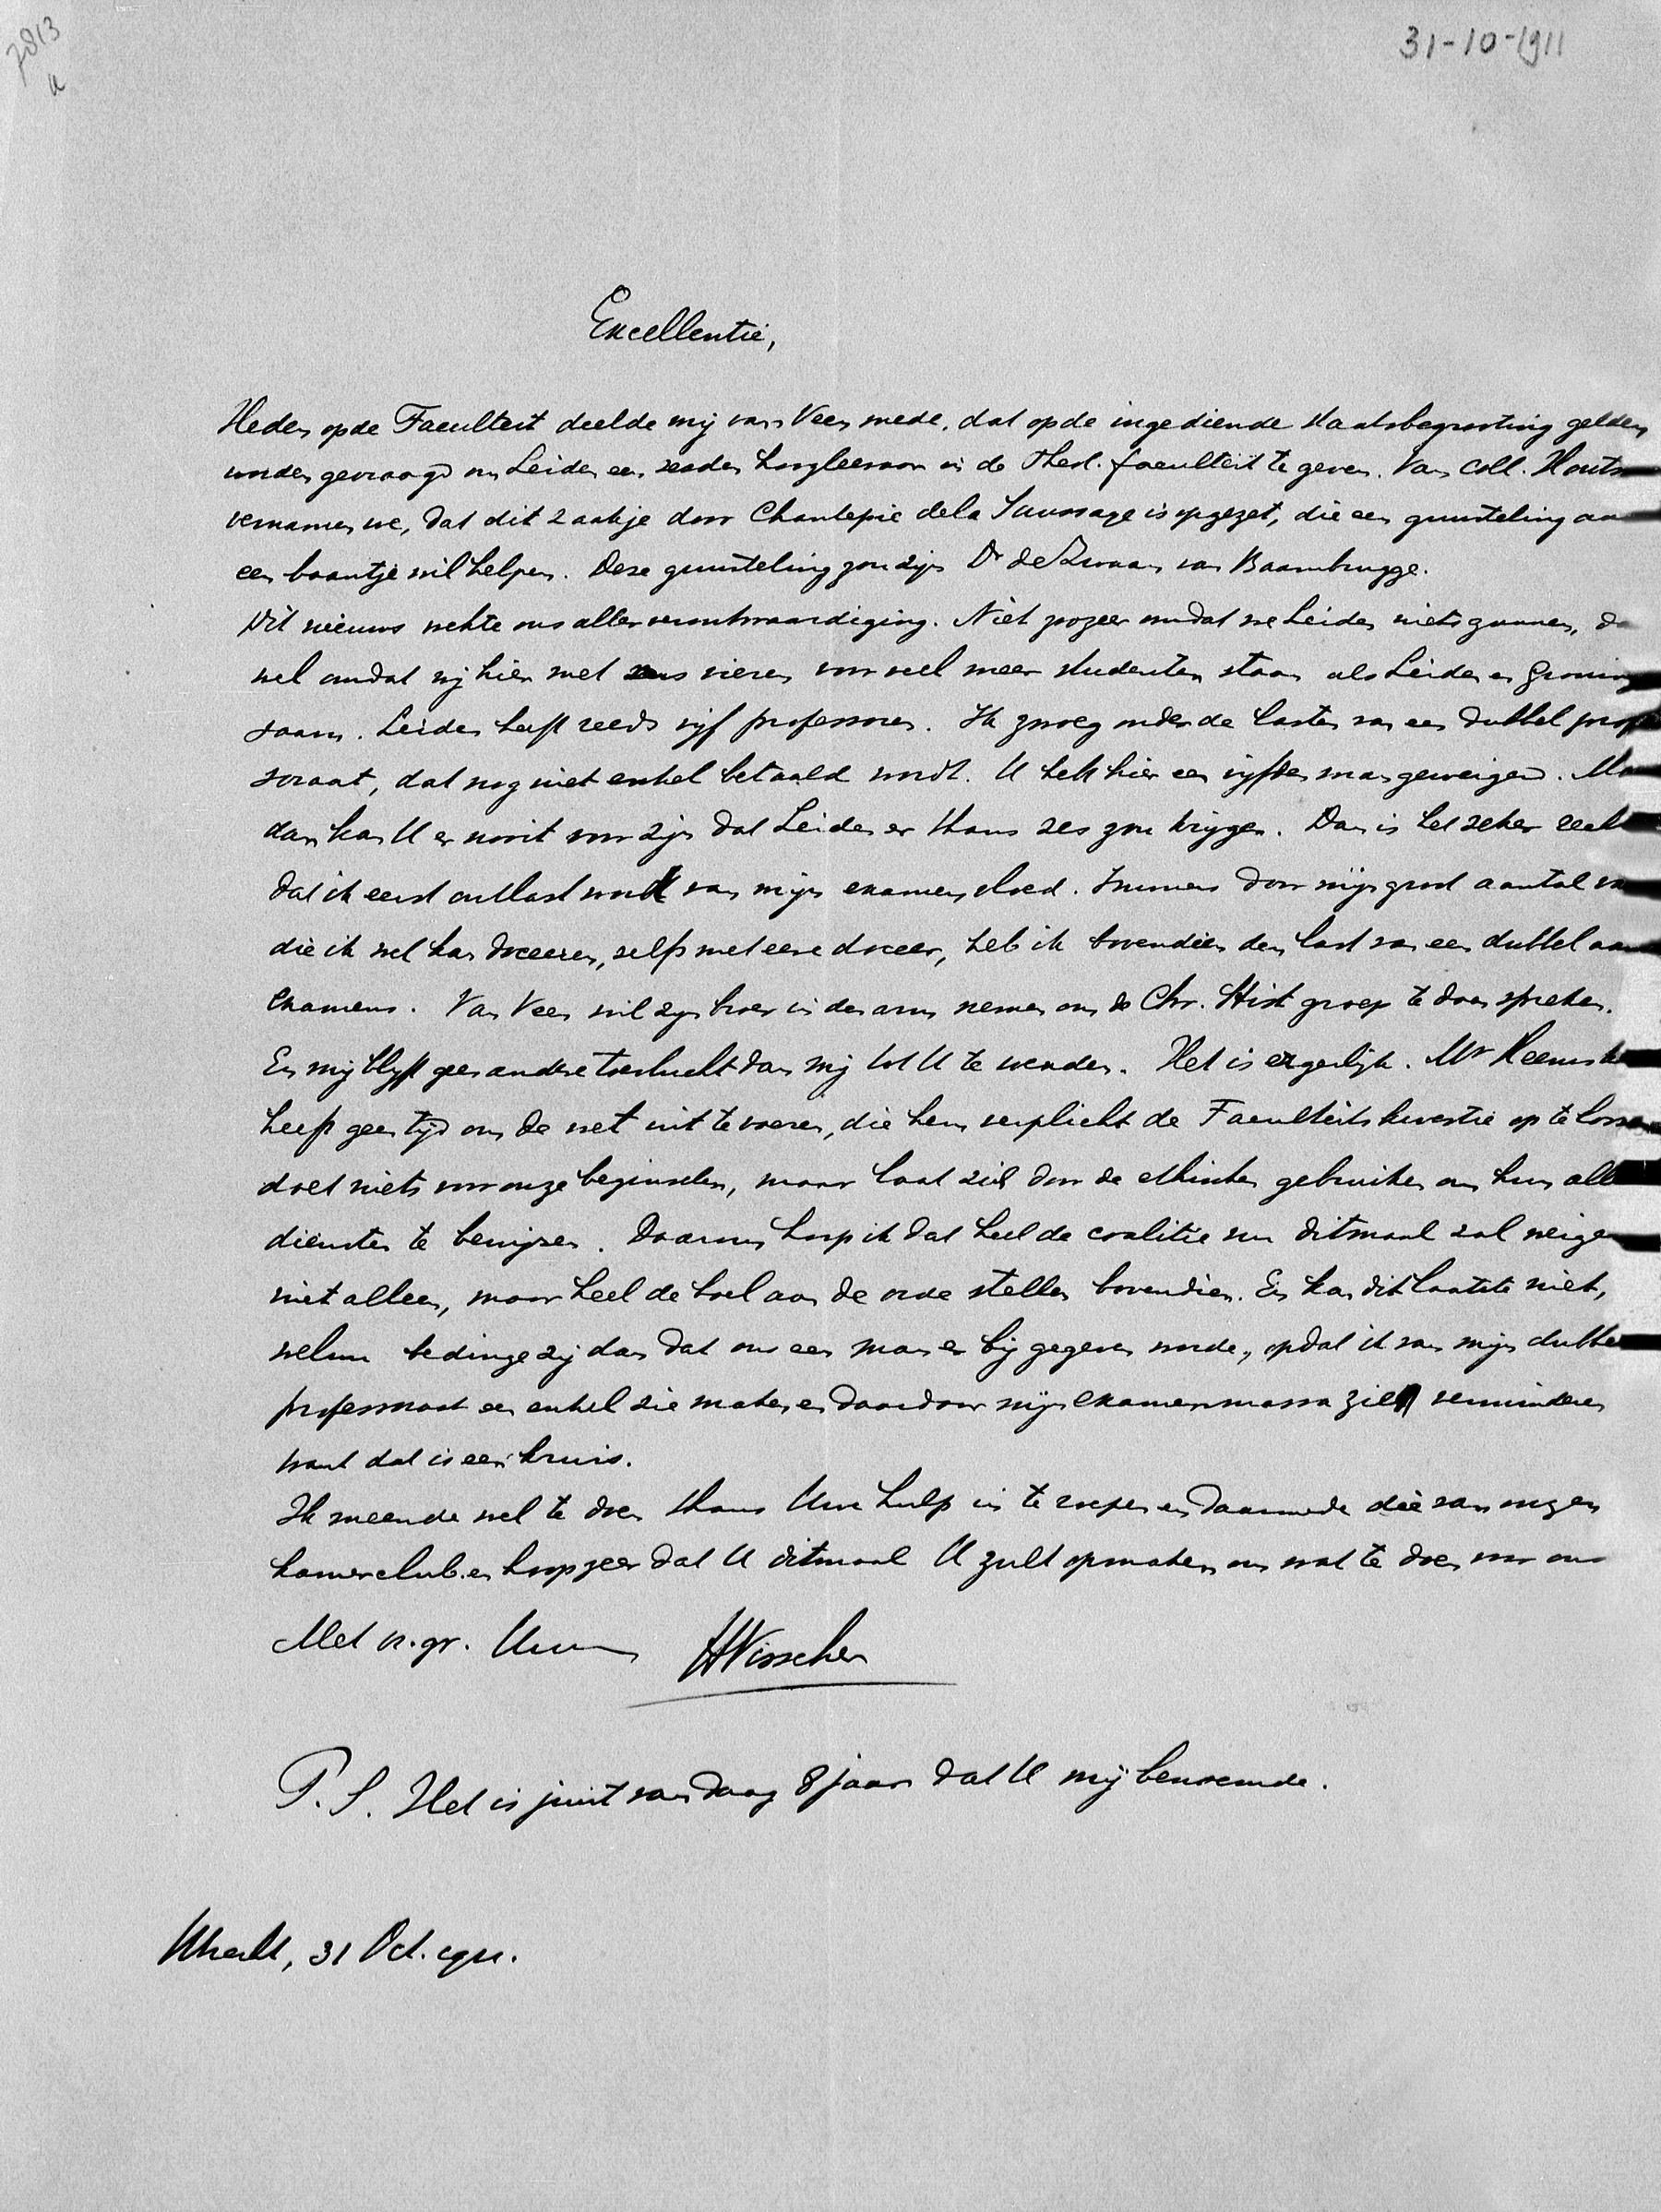 7813
a
31-10-1911
Excellentie,
Heden op de Faculteit deelde mij van Veen mede, dat op de ingediende staatsbegrooting gelden
worden gevraagd om Leiden een zesden hoogleeraar in de Theol. faculteit te geven. Van coll. Houts
vernamen we, dat dit zaakje door Chantepie de la Saussaye is opgezet, die een gunsteling aan
een baantje wil helpen. Deze gunsteling zou zijn Dr de Zwaan van Baambrugge.
Dit nieuws wekte ons aller verontwaardiging. Niet zoozeer omdat we Leiden niets gunnen, do
wel omdat wij hier met ons vieren voor veel meer studenten staan als Leiden en Gronin
saam. Leiden heeft reeds vijf professoren. Ik zwoeg onder de lasten van een dubbel profes
soraat, dat nog niet enkel betaald wordt. U hebt hier een vijfden man geweigerd. Ma
dan kan U er nooit voor zijn dat Leiden er thans zes zou krijgen. Dan is het zeker eerst
dat ik eerst ontlast word van mijn examenvloed. Immers door mijn groot aantal va
die ik wel kan doceeren, zelfs met eere doceer, heb ik bovendien den last van een dubbel aan
examens. Van Veen wil zijn broer in den arm nemen om de Chr. Hist groep te doen spreken.
En mij blijft geen andere toevlucht dan mij tot U te wenden. Het is ergerlijk. Mr Heemske
heeft geen tijd om de wet uit te voeren, die hem verplicht de Faculteitskwestie op te lossen
doet niets voor onze beginselen, maar laat zich door de ethischen gebruiken om hun alle
diensten te bewijzen. Daarom hoop ik dat heel de coalitie nu ditmaal zal weigeren
niet alleen, maar heel de boel aan de orde stellen bovendien. En kan dit laatste niet,
welnu bedinge zij dan dat ons een man er bij gegeven worde, opdat ik van mijn dubbel
professoraat een enkel zie maken en daardoor mijn examenmassa zie verminderen
want dat is een kruis.
Ik meende wel te doen thans Uw hulp in te roepen en daarmede die van onzen
kamerclub en hoop zeer dat U ditmaal U zult opmaken om wat te doen voor ons
Met vr. gr. Uw HVisscher
P.S. Het is juist vandaag 8 jaar dat U mij benoemde.
Utrecht, 31 Oct. 1911.